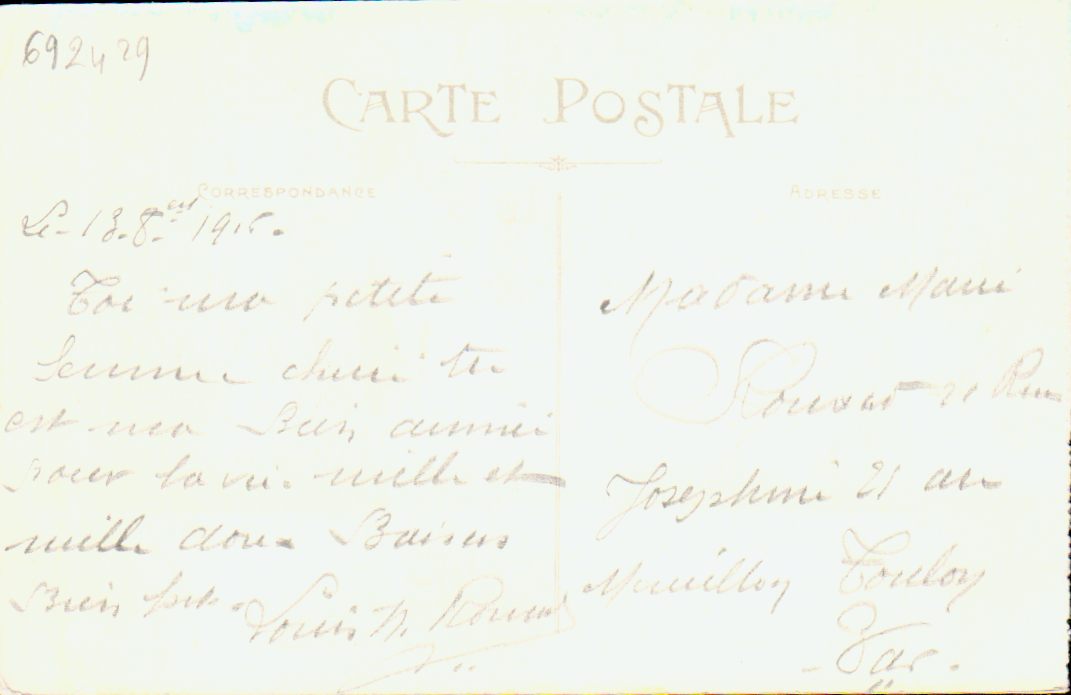 692429
CARTE POSTALE
CORRESPONDANCE
ADRESSE
Le 13-8- 191
Toi ma petite
femme cherie tu
est ma Bien aimée
pour la vie mille et
mille doux Baisers
Bien fort.
Louis
Madame Marie
Rue
Josephine 21 au
Mourillon Toulon
Var.